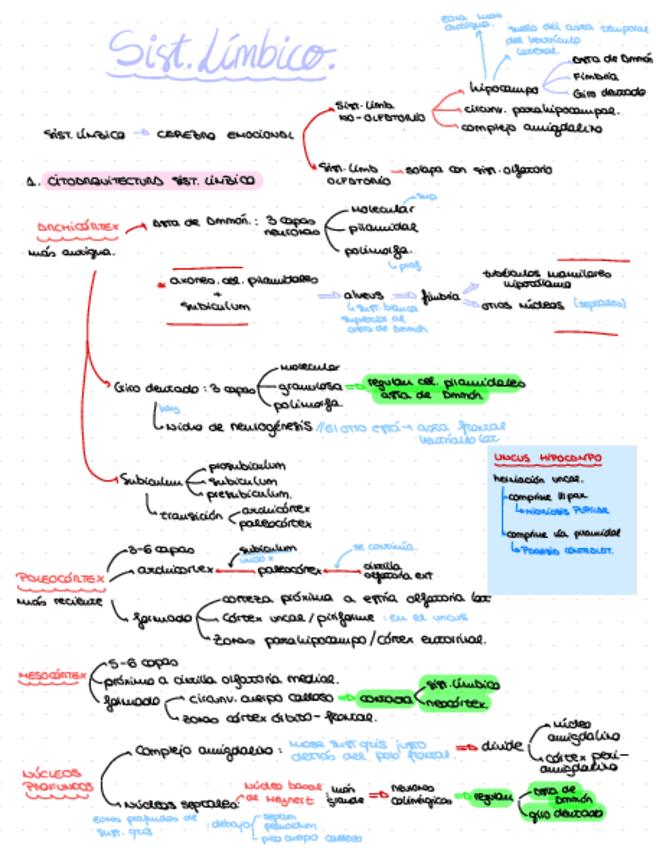 Sist. Límbico.
zona más antigua.
suelo del asta temporal del ventrículo lateral.
Hipocampo
asta de Ammón
Fimbria
Giro dentado
Sist. Limb. NO-OLFATORIO
circunv. parahipocampal.
complejo amigdalino
SIST. LÍMBICO → CEREBRO EMOCIONAL
Sist. Limb OLFATORIO → solapa con sist. olfatorio
1. CITOARQUITECTURA SIST. LÍMBICO
ARCHICÓRTEX
más antigua.
asta de Ammón.: 3 capas neuronas
molecular
sup
piramidal
polimorfa.
prof
axones. cel. piramidales
+
subiculum
⇒ alveus ⇒ fimbria
sust. blanca superior al asta de Ammón
tubérculos mamilares hipotálamo
otros núcleos (septales)
Giro dentado : 3 capas
molecular
granulosa ⇒ regulan cel. piramidales asta de Ammón
polimorfa.
hay
Nicho de neurogénesis // el otro está → asta frontal ventrículo lat
Subiculum
prosubiculum
subiculum
presubiculum.
transición
archicórtex
paleocórtex
UNCUS HIPOCAMPO
herniación uncal.
comprime III par
MIDRIASIS PUPILAR
comprime vía piramidal
PARESIA CONTROLAT.
PALEOCÓRTEX
más reciente
3-6 capas
archicortex
subiculum
paleocórtex
se continúa.
cintilla olfatoria ext
formado
corteza próxima a estría olfatoria lat
Córtex uncal / piriforme : en el uncus
Zonas parahipocampo / córtex entorrinal.
MESOCÓRTEX
5-6 capas
próximo a cintilla olfatoria medial.
formado
circunv. cuerpo calloso ⇒ contacta
sist. límbico
neocórtex.
zonas córtex órbito-frontal.
NÚCLEOS PROFUNDOS
Complejo amigdalino : masa sust gris justo detrás del polo frontal. ⇒ divide
núcleo amigdalino
córtex peri-amigdalino
Núcleos septales
Núcleo basal de Meynert : más grande ⇒ neuronas colinérgicas ⇒ regulan
asta de Ammón
giro dentado
zonas profundas de sust. gris : debajo
septum pellucidum
pico cuerpo calloso